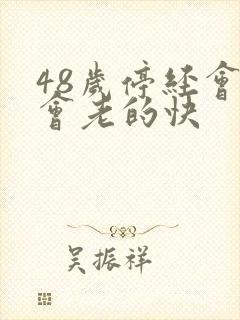 48歲停經會
會老的快
吴振祥